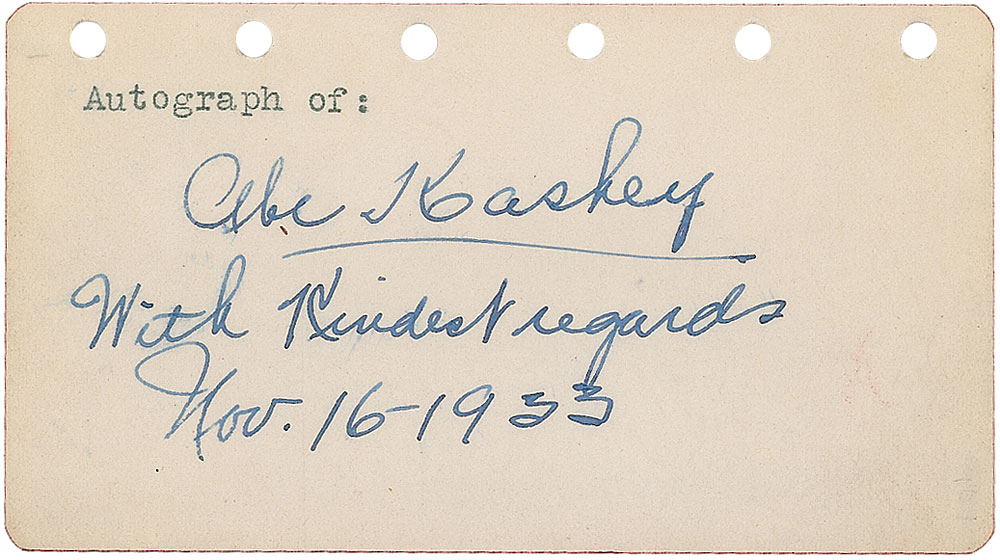 Autograph of:
Abe Kashey
With Kindest regards
Nov. 16-1933